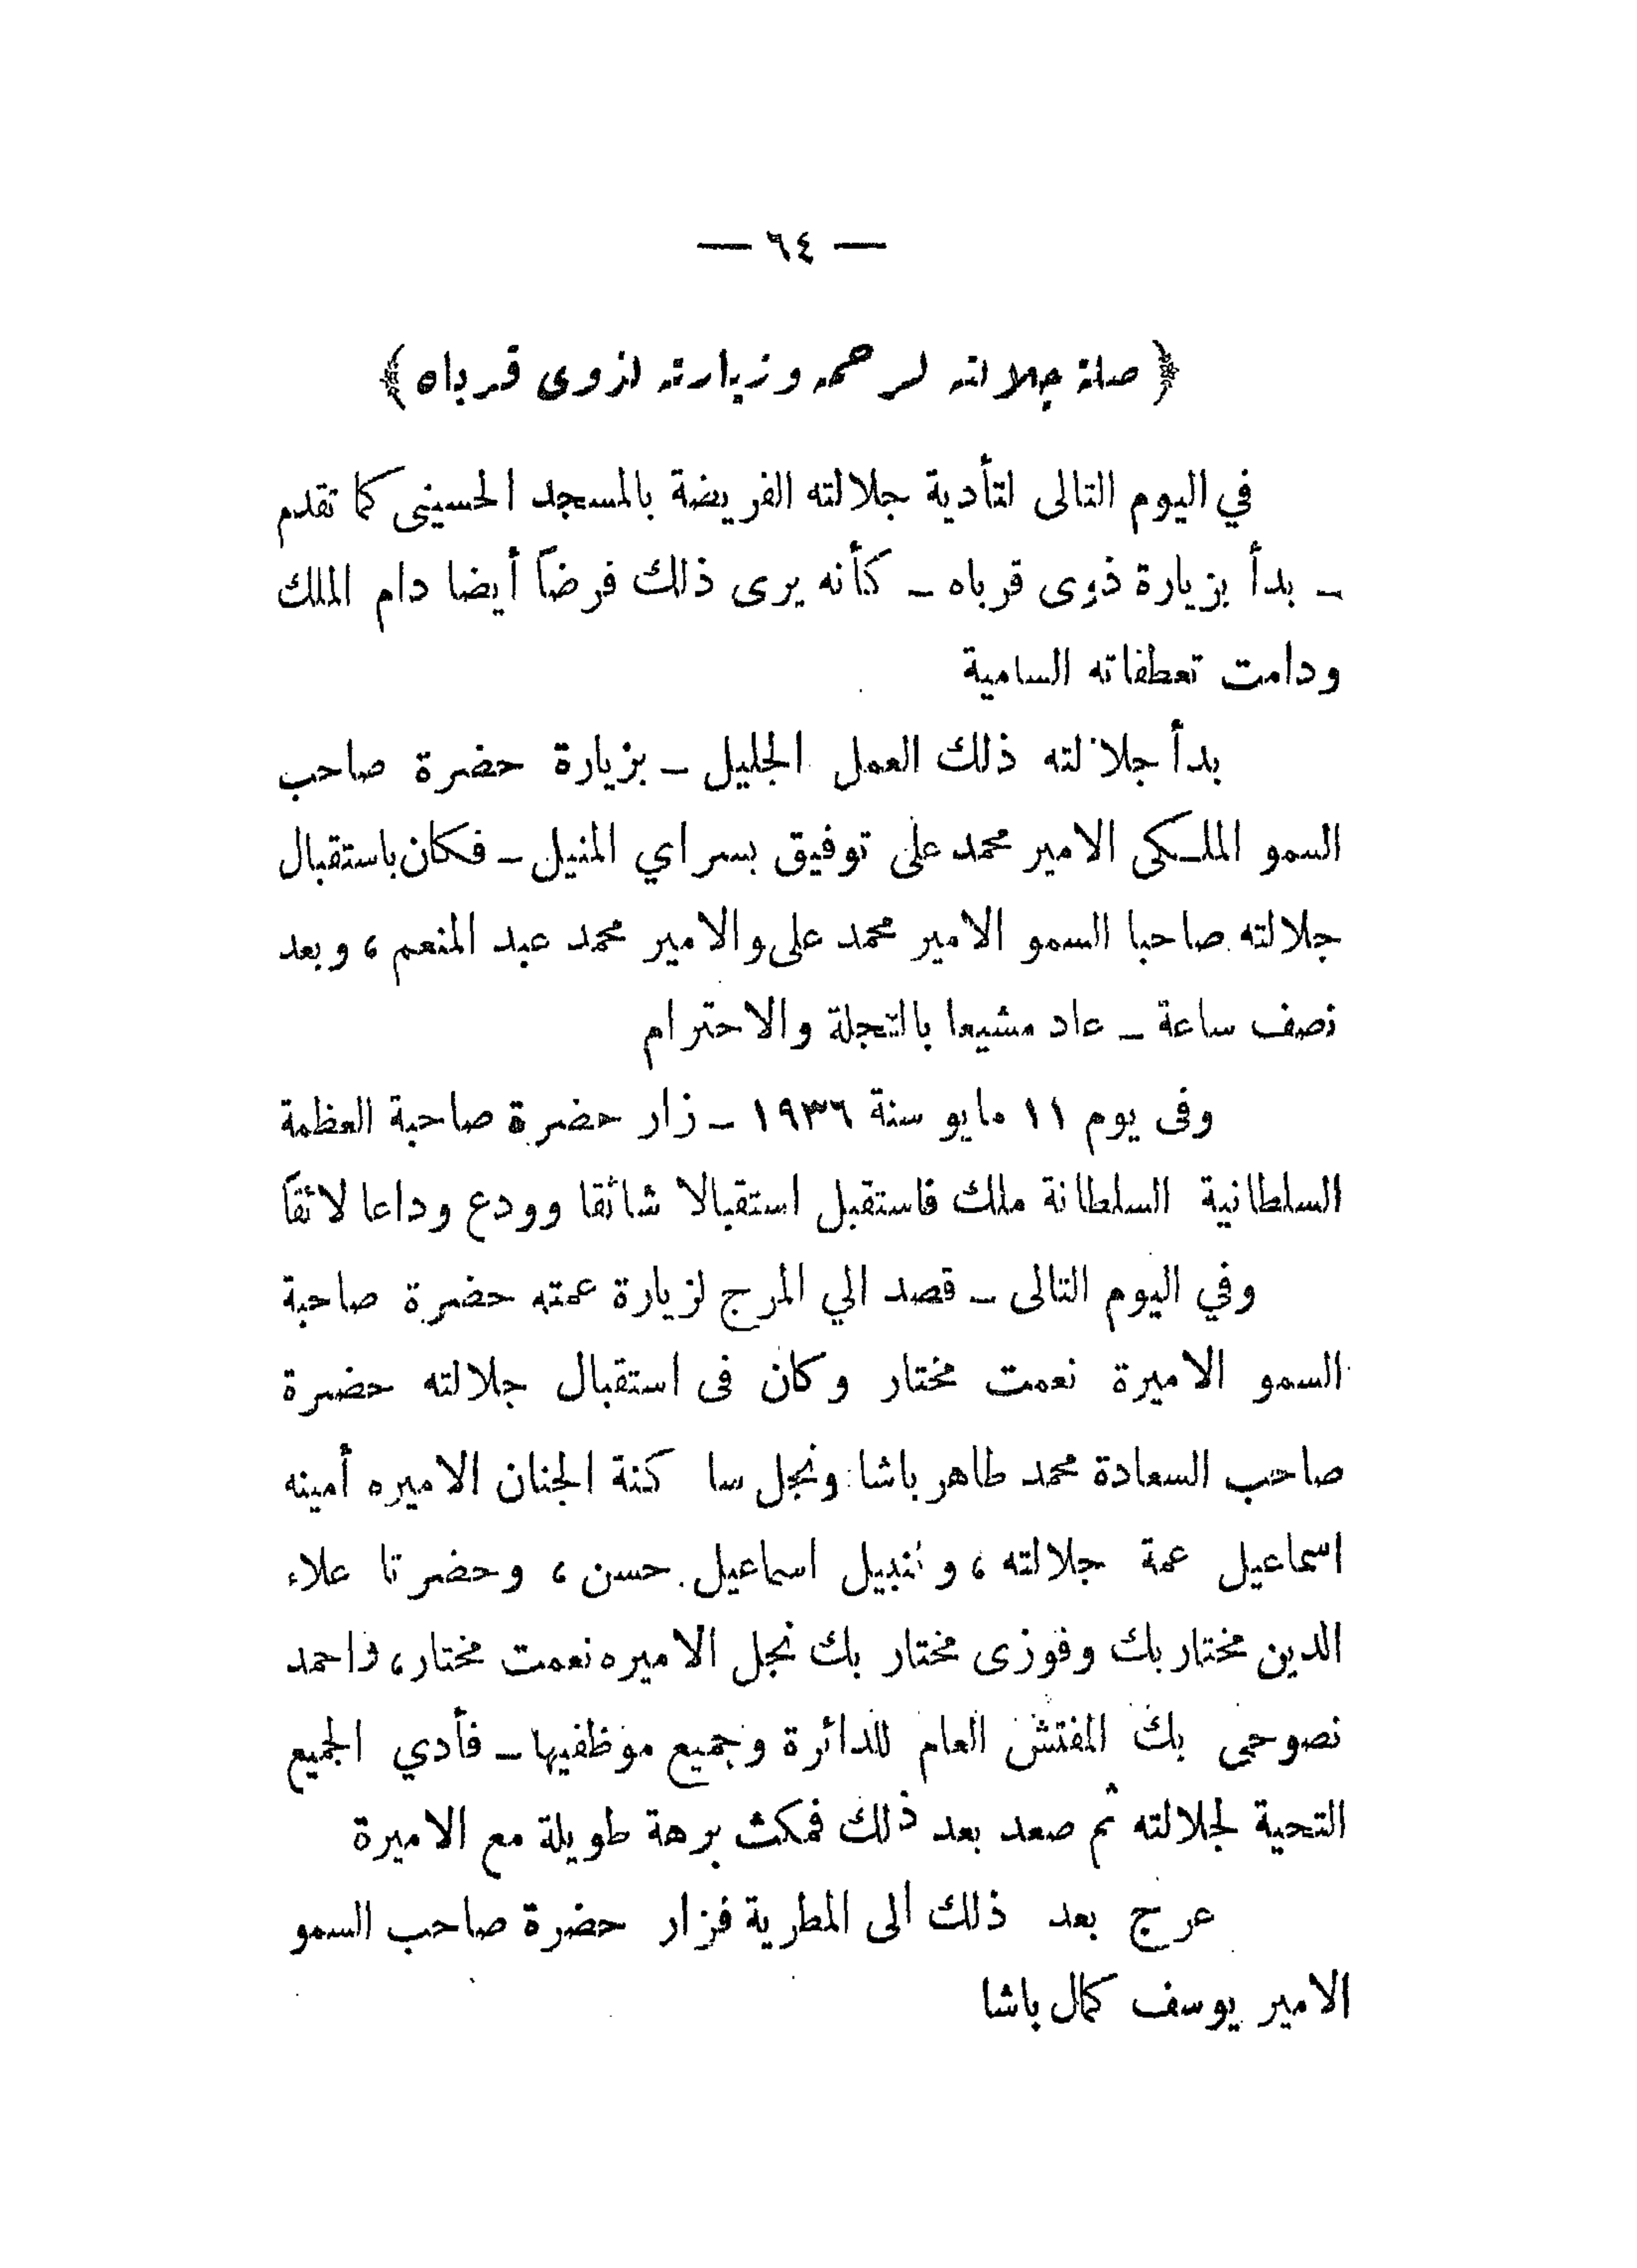 — ٦٤ —
﴿ صلة جلالته لرحمه وزيارته لذوى قرباه ﴾
في اليوم التالى لتأدية جلالته الفريضة بالمسجد الحسينى كما تقدم
– بدأ بزيارة ذوى قرباه – كأنه يرى ذلك فرضاً أيضا دام الملك
ودامت تعطفاته السامية
بدأ جلالته ذلك العمل الجليل – بزيارة حضرة صاحب
السمو الملكى الامير محمد على توفيق بسراي المنيل – فكان باستقبال
جلالته صاحبا السمو الامير محمد على والامير محمد عبد المنعم ، وبعد
نصف ساعة – عاد مشيعا بالتجلة والاحترام
وفى يوم ١١ مايو سنة ١٩٣٦ – زار حضرة صاحبة العظمة
السلطانية السلطانة ملك فاستقبل استقبالا شائقا وودع وداعا لائقاً
وفي اليوم التالى – قصد الي المرج لزيارة عمته حضرة صاحبة
السمو الاميرة نعمت مختار وكان فى استقبال جلالته حضرة
صاحب السعادة محمد طاهر باشا ونجل سا كنة الجنان الاميره أمينه
اسماعيل عمة جلالته ، ونبيل اسماعيل حسن ، وحضرتا علاء
الدين مختار بك وفوزى مختار بك نجل الاميره نعمت مختار ، واحمد
نصوحى بك المفتش العام للدائرة وجميع موظفيها – فأدي الجميع
التحية لجلالته ثم صعد بعد ذلك فمكث برهة طويلة مع الاميرة
عرج بعد ذلك الى المطرية فزار حضرة صاحب السمو
الامير يوسف كمال باشا